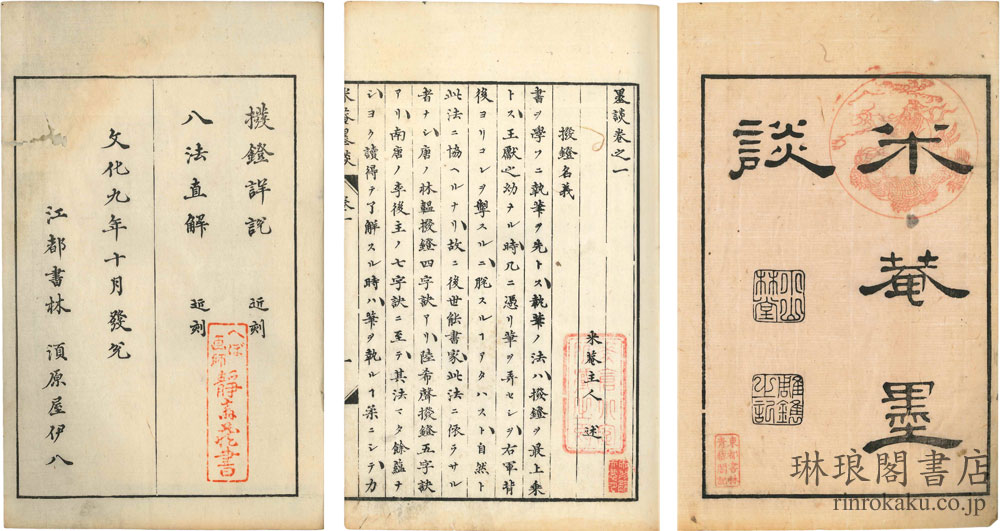 米菴墨
談
小山
林堂
琳琅閣書店
rinrokaku.co.jp
墨談卷之一
撥鐙名義
米菴主人 述
書ヲ學フニ執筆ヲ先トス執筆ノ法ハ撥鐙ヲ最上乘
トス王獻之幼ナル時几ニ憑リ筆ヲ弄セシヲ右軍背
後ヨリコレヲ掣スルニ脱スルヿアタハスト自然ト
此法ニ協ヘルナリ故ニ後世能書家此法ニ依ラサル
者ナシ唐ノ林韞撥鐙四字訣アリ陸希聲撥鐙五字訣
アリ南唐ノ李後主ノ七字訣ニ至テ其法マタ餘蘊ナ
シヨク讀得テ了解スル時ハ筆ヲ執ルヿ栄ニシテカ
米菴墨談 卷一
撥鐙詳説 近刻
八法直解 近刻
文化九年十月發兌
江都書林 須原屋伊八